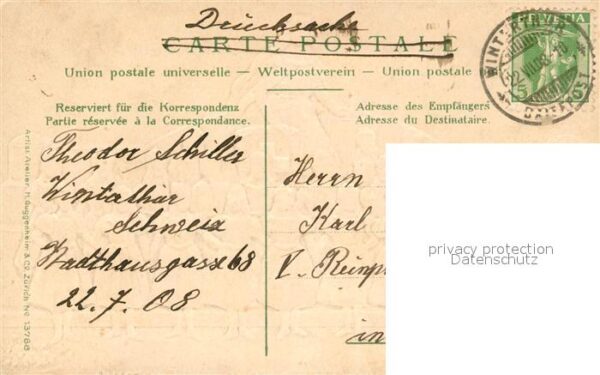 Drucksache
CARTE POSTALE
Union postale universelle — Weltpostverein — Union postale
Reserviert für die Korrespondenz
Partie réservée à la Correspondance.
Adresse des Empfängers
Adresse du Destinataire.
HELVETIA
5
BRIEFPOST
Theodor Schiller
Wintathur
Schweiz
Stadthausgasse 68
22.7.08
Herrn
Karl
V.
in
privacy protection
Datenschutz
Artist. Atelier. H. Guggenheim & Co. Zürich No 13786